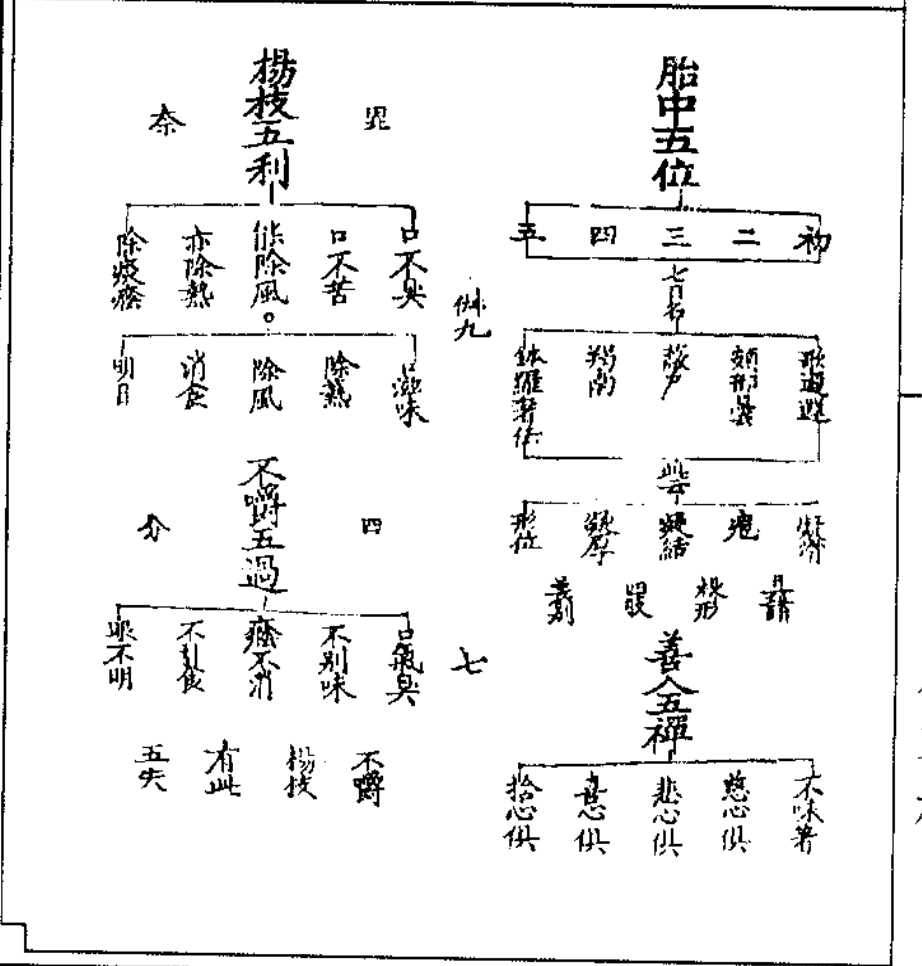 胎中五位
初
二
三
四
五
七日名
羯南
凝滑
皰
凝結
凝厚
形位
善人五禪
不味著
慈心俱
悲心俱
喜心俱
捨心俱
楊枝五利
毘
奈
口不臭
口不苦
能除風
亦除熱
除痰癊
律九
口滋味
除熱
除風
消食
明目
不嚼五過
四
分
口氣臭
不別味
癊不消
不引食
眼不明
七
不嚼
楊枝
有此
五失